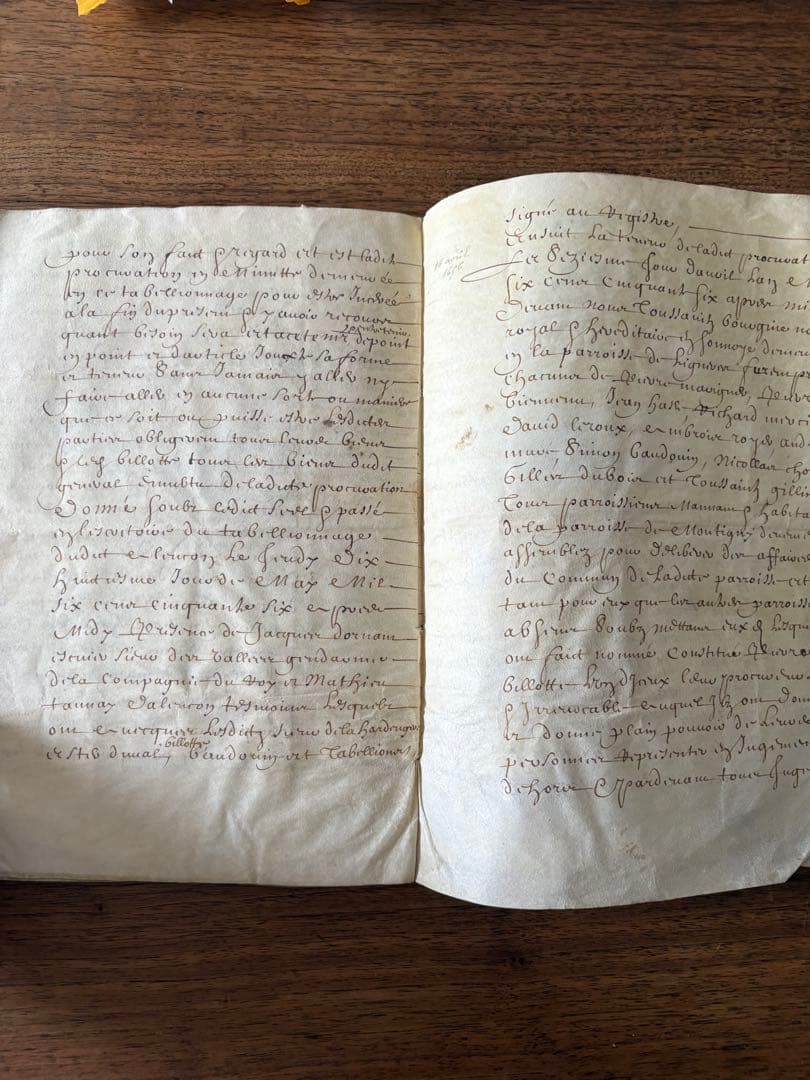 pour son faict & regard et est ladite
procuration en Minutte demeurée
en ce tabellionnage pour estre Inserée
a la fin du present & y avoir recours
quant besoin sera et a ce tenir
et entretenir
de point
en point et d'article Jouxte sa forme
et teneur sans Jamais y aller ny
faire aller en aucune sorte ou maniere
que ce soit ou puisse estre lesdictes
parties obligerent tous leurs biens
& led billotte tous les biens dudit
general en vertu de ladicte procuration
Donné soubz ledict scel & passé
en lescritoire du tabellionnage
dudict alencon le Jeudy Dix
huictiesme Jour de May Mil
six cens cinquante six apres
Midy Presence de Jacques dornant
escuier sieur des vallees gendarme
de la Compagnie du Roy et Mathieu
launay dalencon tesmoins Lesquels
ont avecques Lesdictz sieur de la
et duval,
billotte
baudouin et Tabellions
signé au Registre,
Ensuit La teneur de ladicte procurat
16 avril
1656
Le seziesme Jour davril Lan M
six cens Cinquante six apres mi
Devant nous Toussainctz bourgine no
royal & hereditaire demeu
en la parroisse de Ligneres furent pr
Chacuns de Pierre
bienvenu, Jean Richard merci
David leroux, ambroise royer, and
Simon baudouin, Nicollas cho
Gilles duboir et Toussainctz gilli
Tous parroissiens Manans & habita
de la parroisse de Montigny
assemblez pour deliberer des affaires
du Commun de ladicte parroisse et
tant pour eux que les autres parroiss
absens soubz mettans eux & lesque
ont faict nommé Constitué Pierre
billotte Lun Deux leur procureur
& Irrevocable auquel Ilz ont don
et donné plain pouvoir de Leurs
personnes Representer en Jugemen
dehors & Pardevant tous Juge